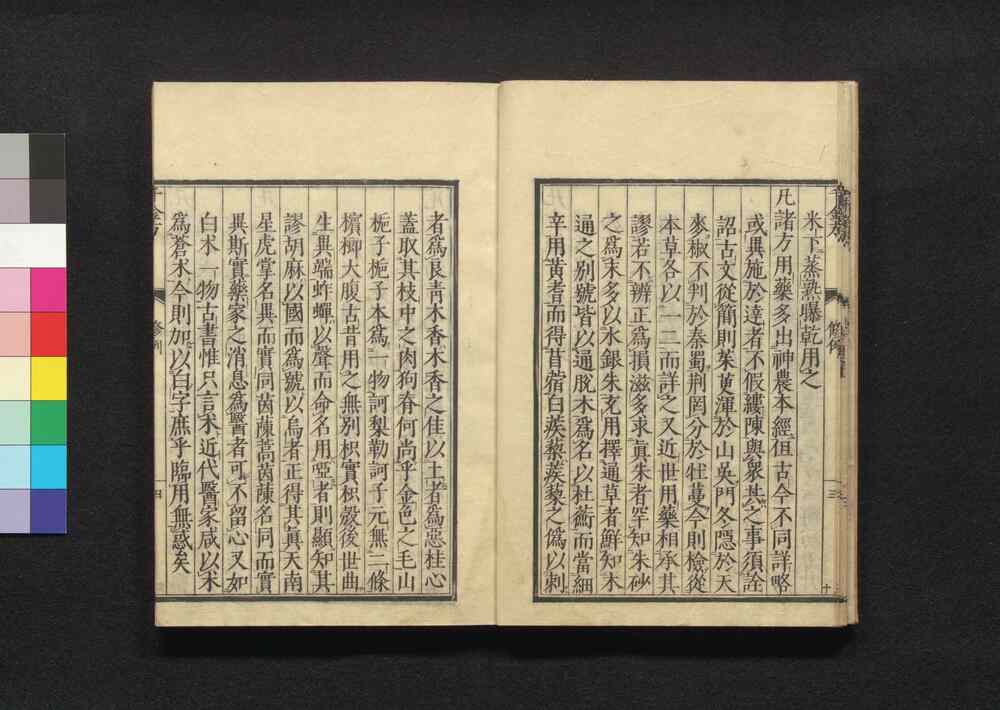 米下蒸熟曝乾用之
凡諸方用藥多出神農本經但古今不同詳略
或異施於達者不假縷陳與衆共之事須詮
詔古文從簡則茱萸渾於山吳門冬隱於天
麥椒不判於秦蜀荆罔分於牡蔓今則檢從
本草各以一二而詳之又近世用藥相承其
謬若不辨正為損滋多求真朱者罕知朱砂
之為末多以水銀朱充用擇通草者鮮知木
通之別號皆以通脫木為名以杜蘅而當細
辛用黄耆而得苜蓿白蒺蔾蒺藜之偽以刺
者為良青木香木香之佳以土者為惡桂心
蓋取其枝中之肉狗脊何尚乎金色之毛山
梔子梔子本為一物訶梨勒訶子元無二條
檳榔大腹古昔用之無別枳實枳殼後世曲
生異端蚱蟬以聲而命名用啞者則顯知其
謬胡麻以國而為號以烏者正得其真天南
星虎掌名異而實同茵蔯蒿茵蔯名同而實
異斯實藥家之消息為醫者可不留心又如
白朮一物古書惟只言朮近代醫家咸以朮
為蒼朮今則加以白字庶乎臨用無惑矣
修例
四